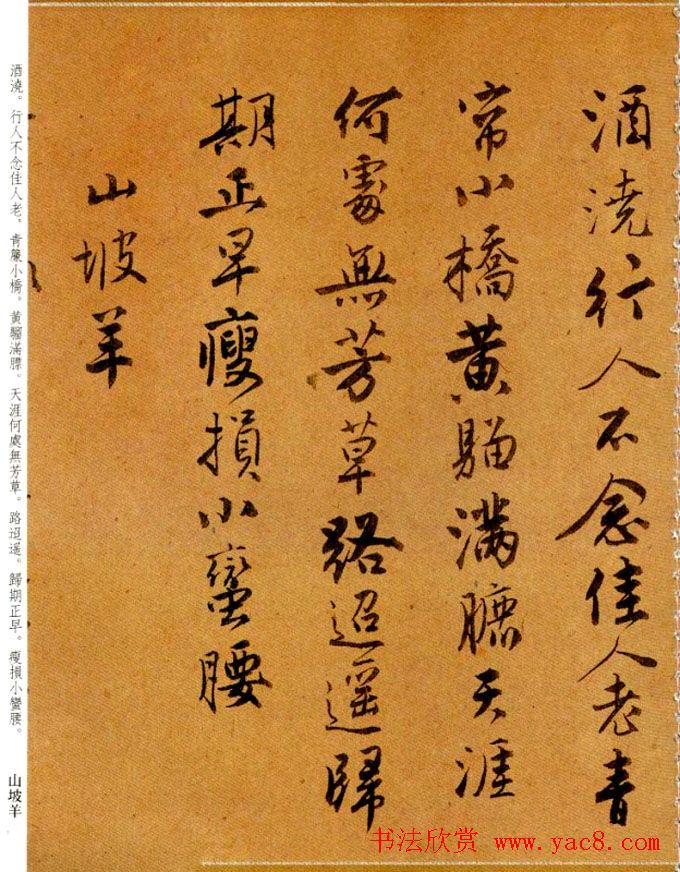 酒澆行人不念佳人老青
帘小橋黄騮滿臕天涯
何處無芳草路迢遥歸
期正早瘦損小蠻腰
山坡羊
酒澆。行人不念佳人老。青簾小橋。黃騮滿膘。天涯何處無芳草。路迢遥。歸期正早。瘦損小蠻腰。
山坡羊
书法欣赏 www.yac8.com